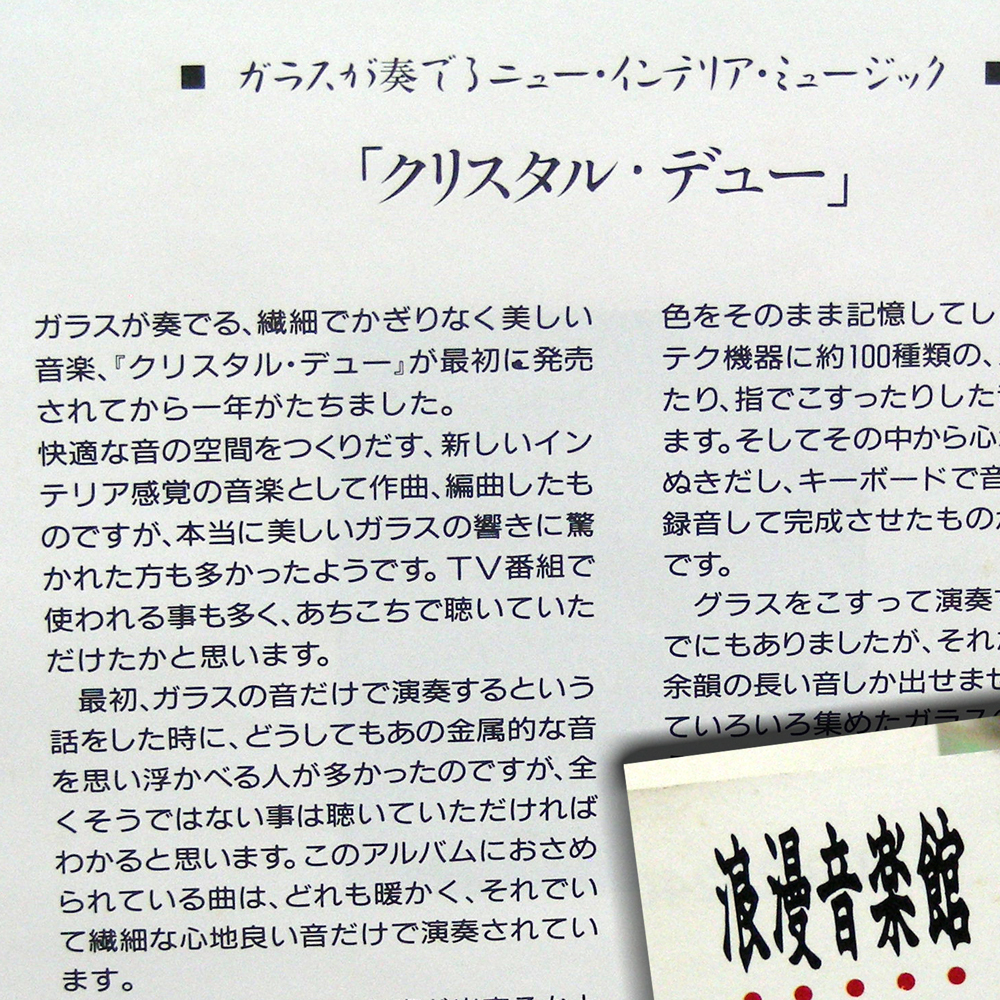 ■ ガラスが奏でるニュー・インテリア・ミュージック ■
「クリスタル・デュー」
ガラスが奏でる、繊細でかぎりなく美しい
音楽、『クリスタル・デュー』が最初に発売
されてから一年がたちました。
快適な音の空間をつくりだす、新しいイン
テリア感覚の音楽として作曲、編曲したも
のですが、本当に美しいガラスの響きに驚
かれた方も多かったようです。TV番組で
使われる事も多く、あちこちで聴いていた
だけたかと思います。
最初、ガラスの音だけで演奏するという
話をした時に、どうしてもあの金属的な音
を思い浮かべる人が多かったのですが、全
くそうではない事は聴いていただければ
わかると思います。このアルバムにおさめ
られている曲は、どれも暖かく、それでい
て繊細な心地良い音だけで演奏されてい
ます。
色をそのまま記憶してし
テク機器に約100種類の、
たり、指でこすったりした
ます。そしてその中から心
ぬきだし、キーボードで音
録音して完成させたもの
です。
グラスをこすって演奏
でにもありましたが、それ
余韻の長い音しか出せませ
ていろいろ集めたガラス
浪漫音楽館